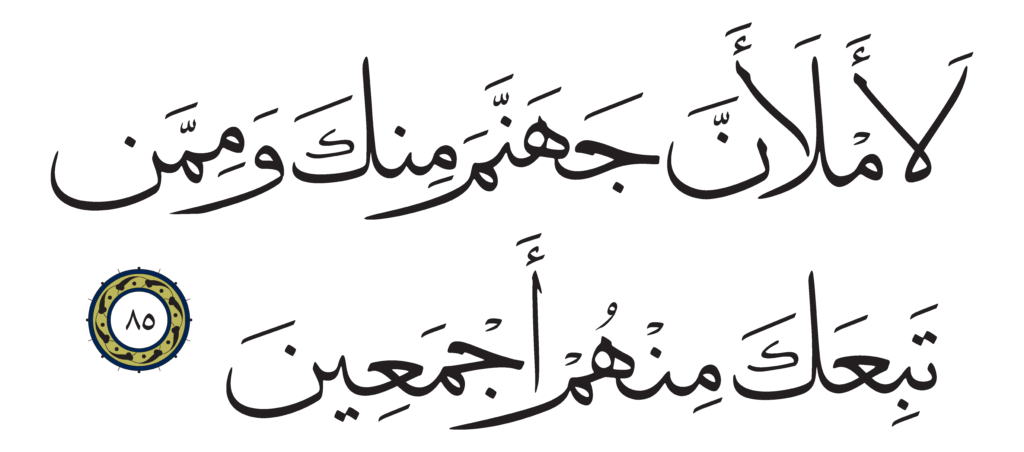 لَأَمْلَأَنَّ جَهَنَّمَ مِنكَ وَمِمَّن
تَبِعَكَ مِنْهُمْ أَجْمَعِينَ ٨٥